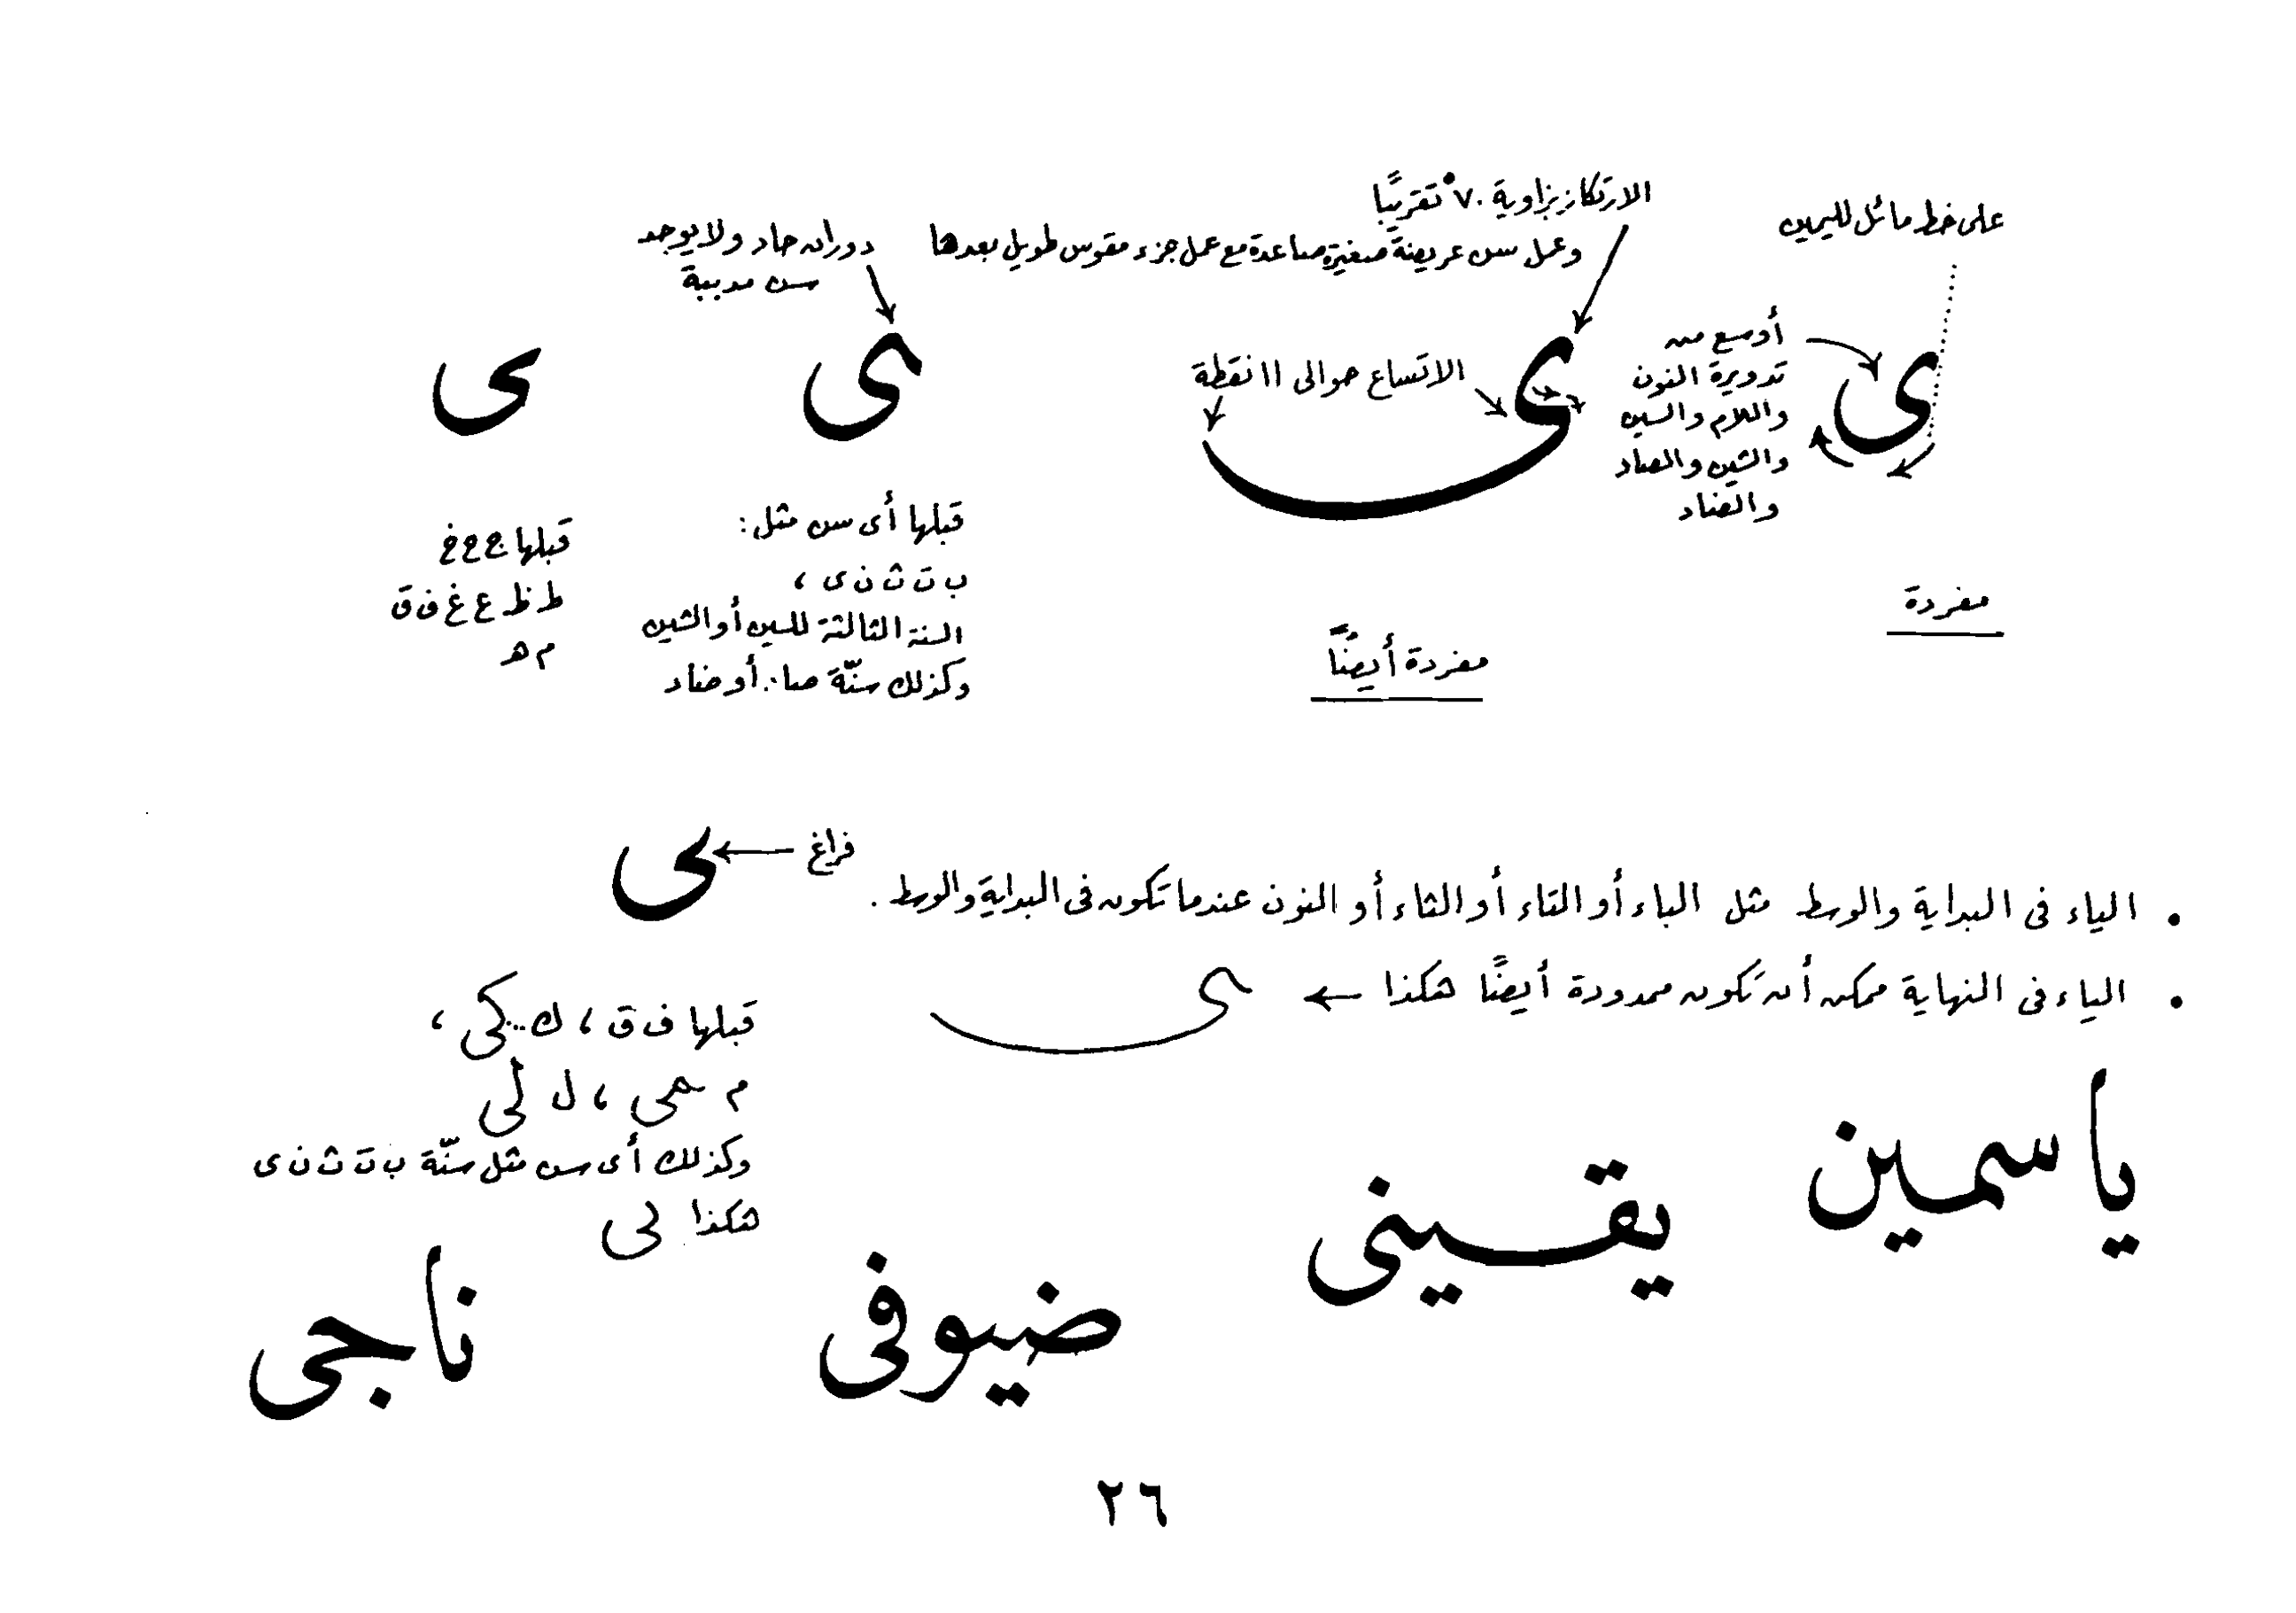 على خط مائل لليمين
ى
أوسع من
تدويرة النون
واللام والسين
والشين والصاد
والضاد
مفردة
الارتكاز بزاوية ٧٠° تقريبًا
وعمل سن عريضة صغيرة صاعدة مع عمل جزء مقوس طويل بعدها
ى
الاتساع حوالى ١١ نقطة
مفردة أيضًا
دوران حاد ولا يوجد
سن مدببة
ى
قبلها أى سن مثل:
ب ت ث ن ى ،
السنة الثالثة للسين أو الشين
وكذلك سنّة صاد أو ضاد
ى
قبلها ج ح خ
ط ظ ع غ ف ق
م ه
• الياء فى البداية والوسط مثل الباء أو التاء أو الثاء أو النون عندما تكون فى البداية والوسط .
• الياء فى النهاية ممكن أن تكون ممدودة أيضًا هكذا ← ى
فراغ ← ى
قبلها ف ق ، ك... كى ،
م ـمى ، ل لى
وكذلك أى سن مثل سنّة ب ت ث ن ى
هكذا لى
ياسمين
يقينى
ضيوفى
ناجى
٢٦